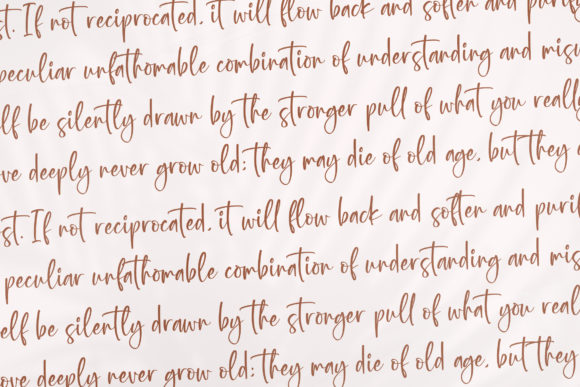 st. If not reciprocated, it will flow back and soften and purif
peculiar unfathomable combination of understanding and misu
elf be silently drawn by the stronger pull of what you really
ove deeply never grow old; they may die of old age, but they
st. If not reciprocated, it will flow back and soften and purif
peculiar unfathomable combination of understanding and mis
elf be silently drawn by the stronger pull of what you real
ove deeply never grow old; they may die of old age, but they